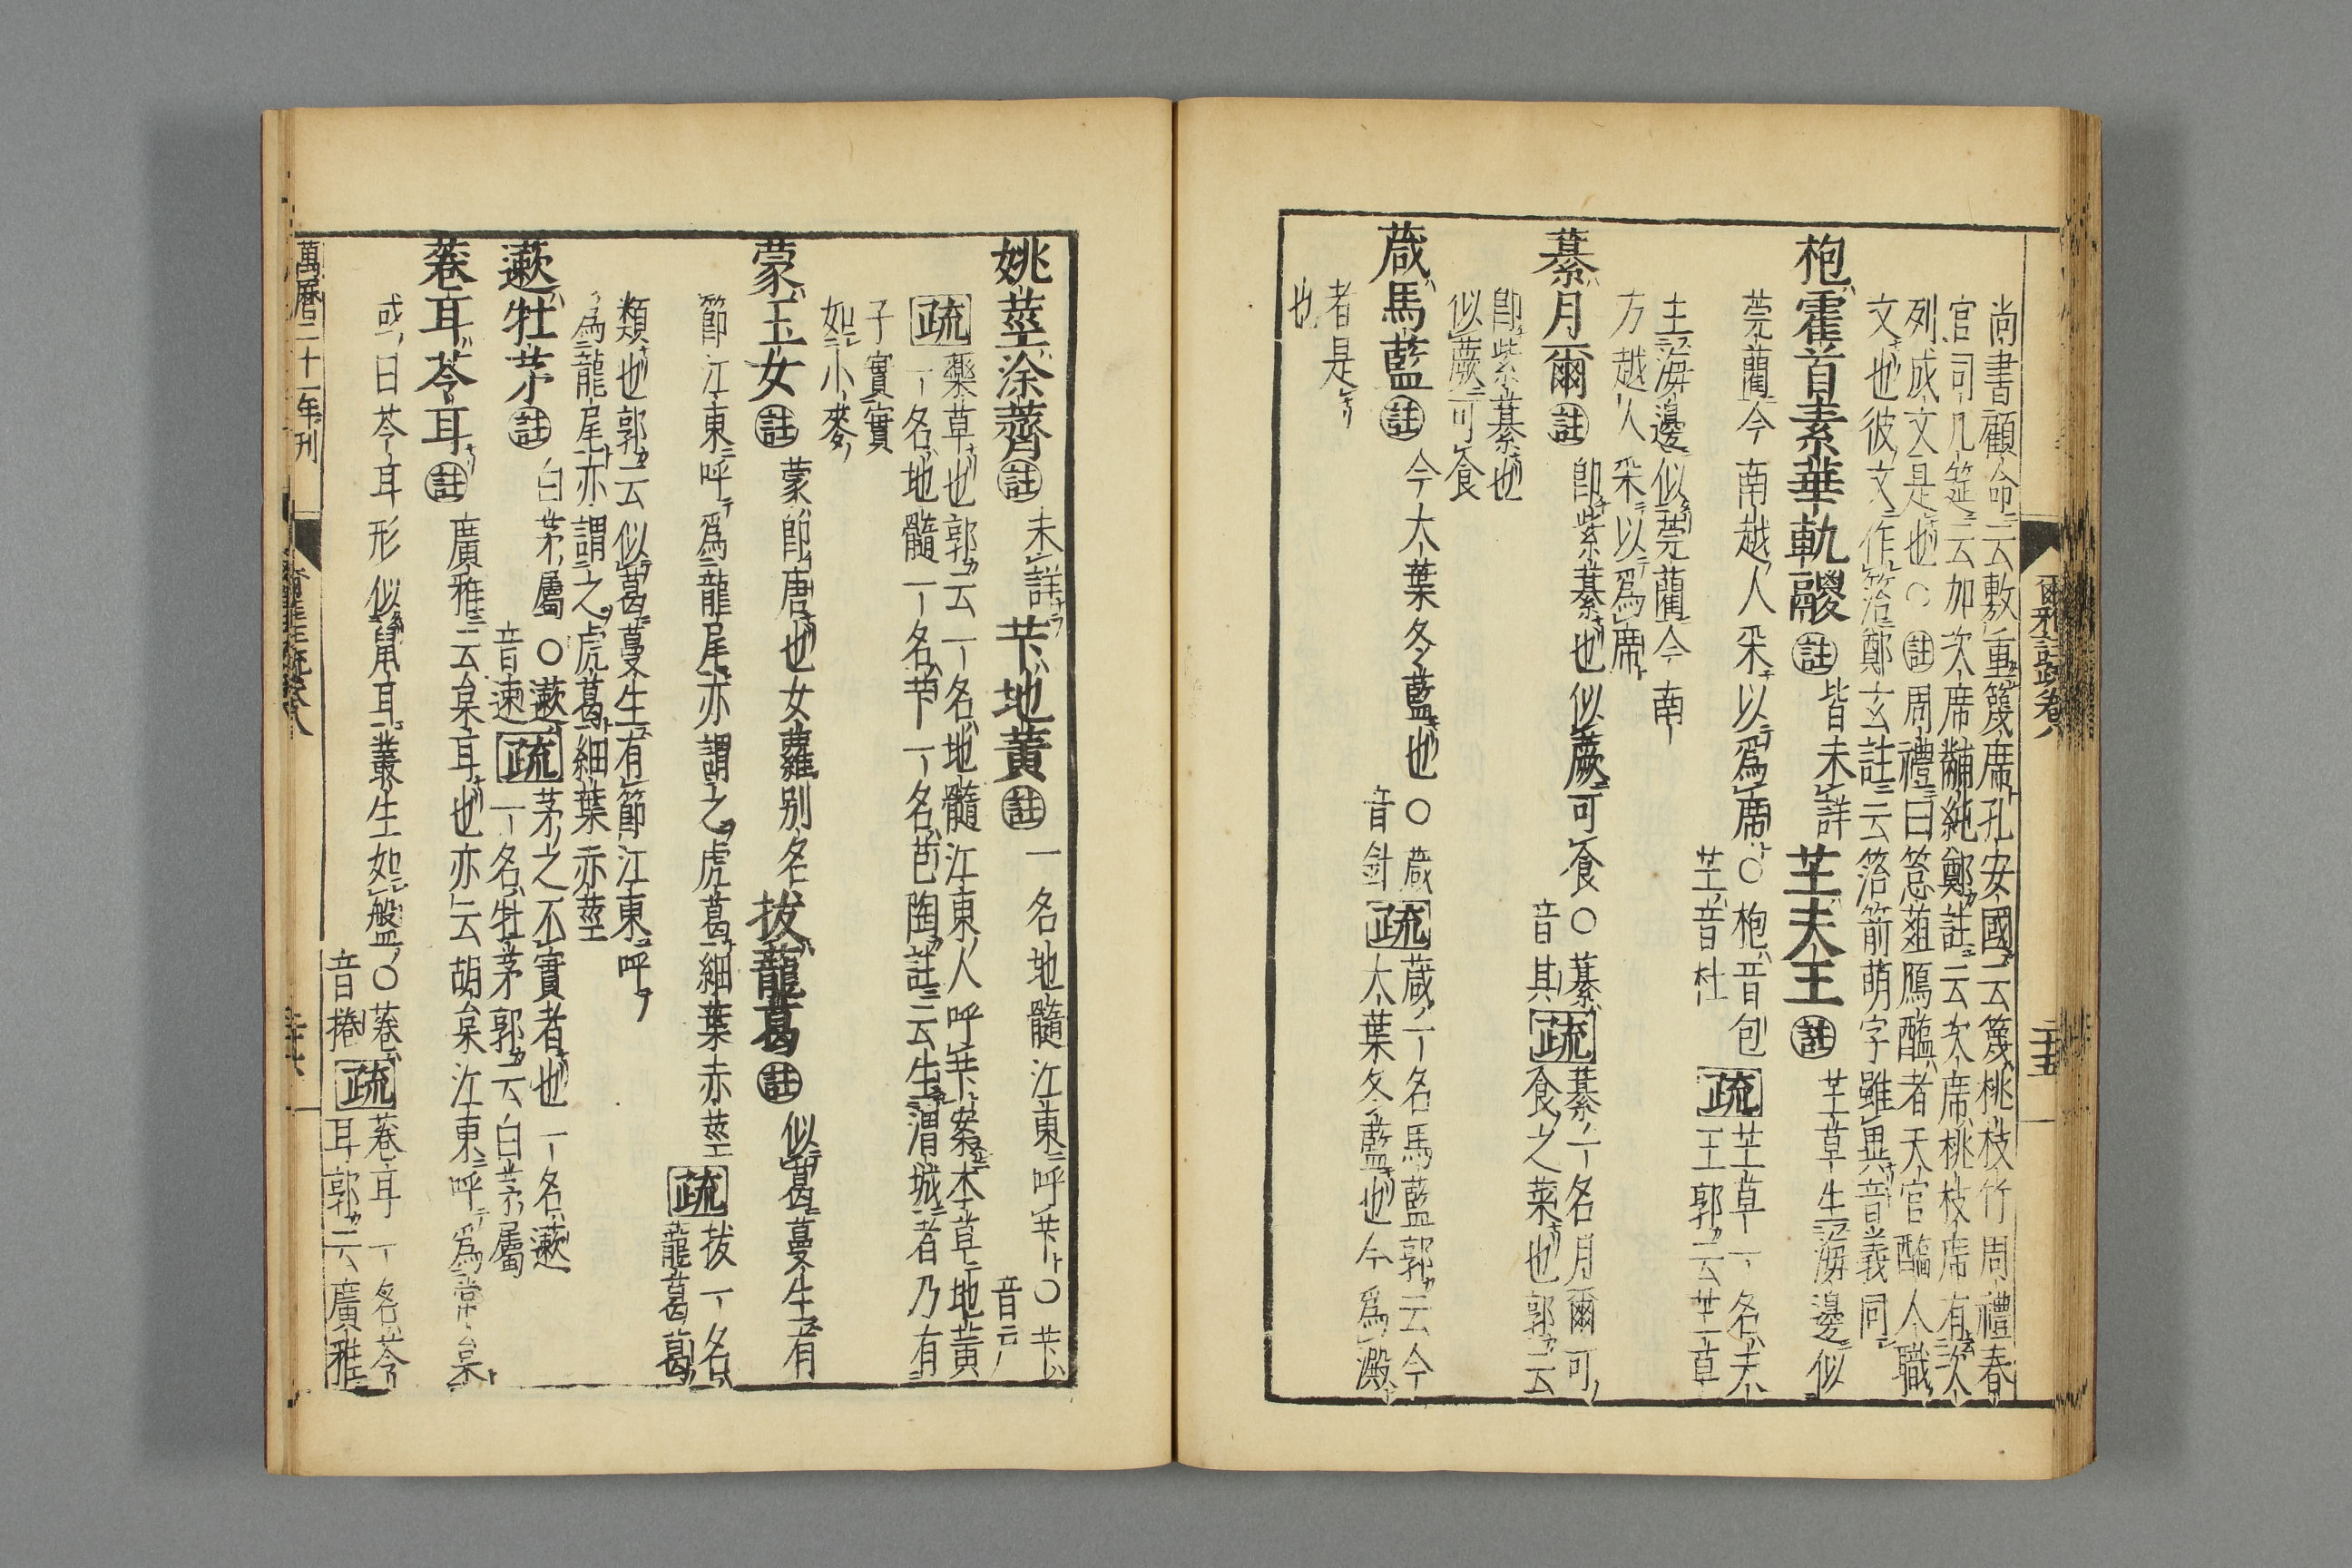 尚書顧命云敷重篾席孔安國云篾桃枝竹周禮春
官司几筵云加次席黼純鄭註云次席桃枝席有次
列成文是也○註周禮曰箈菹鴈醢者天官醢人職
文也彼文作箈鄭玄註云箈箭萌字雖異音義同
枹霍首素華軌鬷註皆未詳芏夫王註芏草生海邊似
莞藺今南越人采以爲席○枹音包芏音杜疏芏草一名夫王郭云芏草
生海邊似莞藺今南
方越人采以爲席
綦月爾註卽紫綦也似蕨可食○綦音其疏綦一名月爾可食之菜也郭云
卽紫綦也
似蕨可食
葴馬藍註今大葉冬藍也○葴音針疏葴一名馬藍郭云今大葉冬藍也今爲澱
者是
也
爾雅註疏卷八
姚莖涂薺註未詳芐地黃註一名地髓江東呼芐○芐音戶
疏藥草也郭云一名地髓江東人呼芐案本草地黃
一名地髓一名芐一名芑陶註云生渭城者乃有
子實實
如小麥
蒙王女註蒙卽唐也女蘿別名拔蘢葛註似葛蔓生有
節江東呼爲龍尾亦謂之虎葛細葉赤莖疏拔一名蘢葛葛
類也郭云似葛蔓生有節江東呼
爲龍尾亦謂之虎葛細葉赤莖
藗牡茅註白茅屬○藗音速疏茅之不實者也一名藗一名牡茅郭云白茅屬
菤耳苓耳註廣雅云枲耳也亦云胡枲江東呼爲常枲
或曰苓耳形似鼠耳叢生如盤○菤音捲疏菤耳一名苓耳郭云廣雅
萬曆二十一年刊